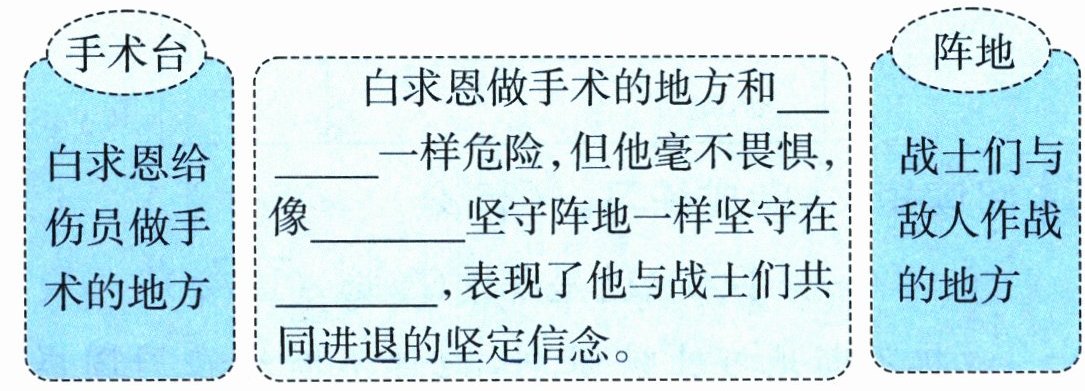 手术台
白求恩给
伤员做手
术的地方
白求恩做手术的地方和__
____一样危险,但他毫不畏惧,
像______坚守阵地一样坚守在
______,表现了他与战士们共
同进退的坚定信念。
阵地
战士们与
敌人作战
的地方